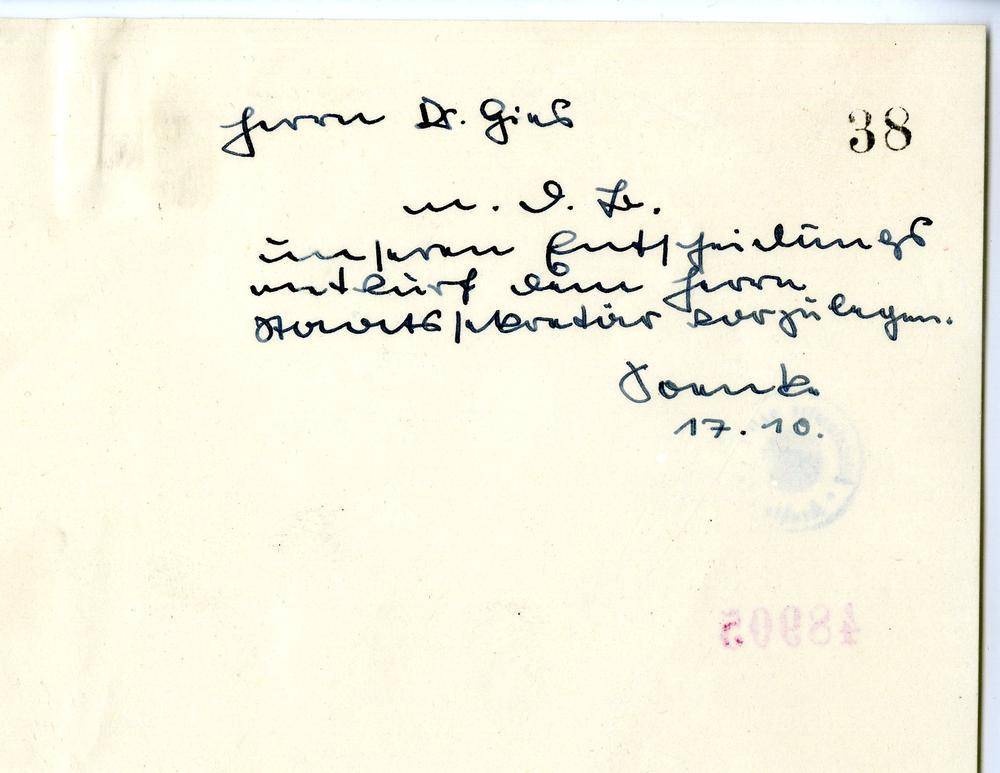 38
Herrn Dr. Gies
m. d. B.
unseren Entscheidungs
entwurf dem Herrn
Staatssekretär vorzulegen.
17.10.
48905